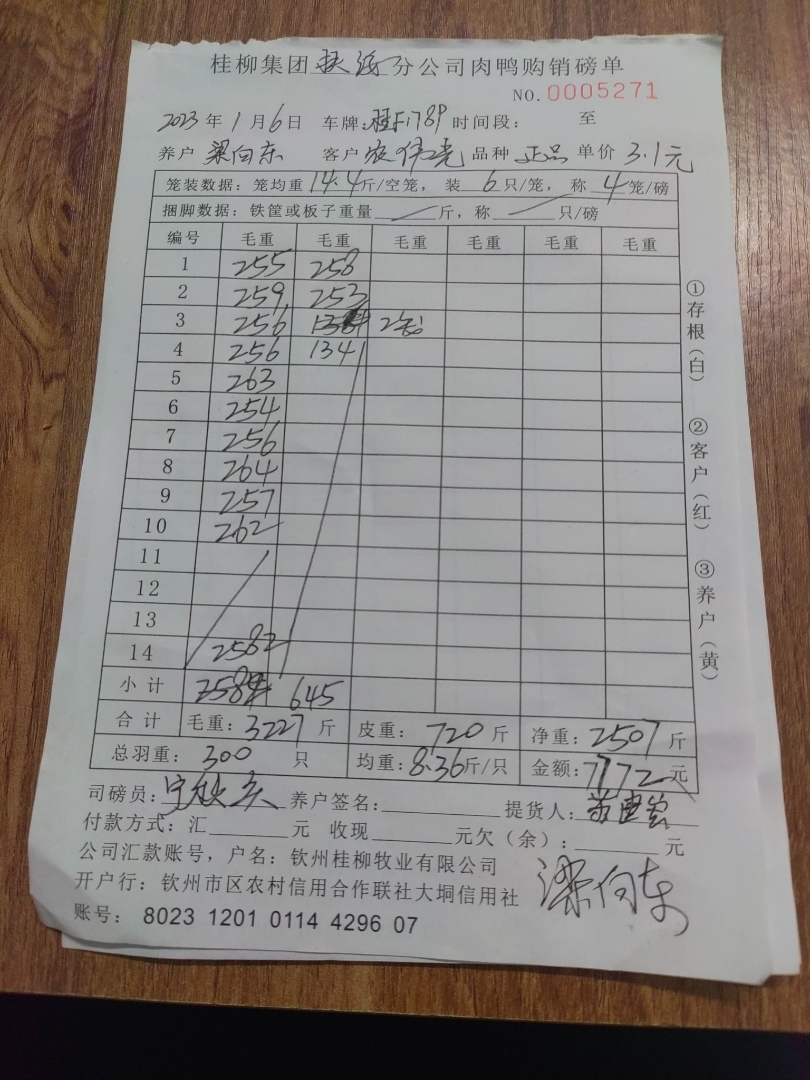 桂柳集团 分公司肉鸭购销磅单
NO. 0005271
2023年1月6日 车牌:桂F1789 时间段: 至
养户 梁向东 客户 农伟亮 品种 正品 单价 3.1元
笼装数据:笼均重 14.4 斤/空笼,装 6 只/笼,称 4 笼/磅
捆脚数据:铁筐或板子重量 斤,称 只/磅
编号 毛重 毛重 毛重 毛重 毛重 毛重
1 255 258
2 259 253
3 256
4 256 134
5 263
6 254
7 256
8 264
9 257
10 262
11
12
13
14 2582
小计 645
合计 毛重:3227 斤 皮重:720 斤 净重:2507 斤
总羽重:300 只 均重:8.36斤/只 金额:7772元
司磅员: 养户签名: 提货人:
付款方式:汇 元 收现 元欠(余): 元
公司汇款账号,户名:钦州桂柳牧业有限公司
开户行:钦州市区农村信用合作联社大垌信用社
梁向东
账号: 8023 1201 0114 4296 07
①存根(白) ②客户(红) ③养户(黄)